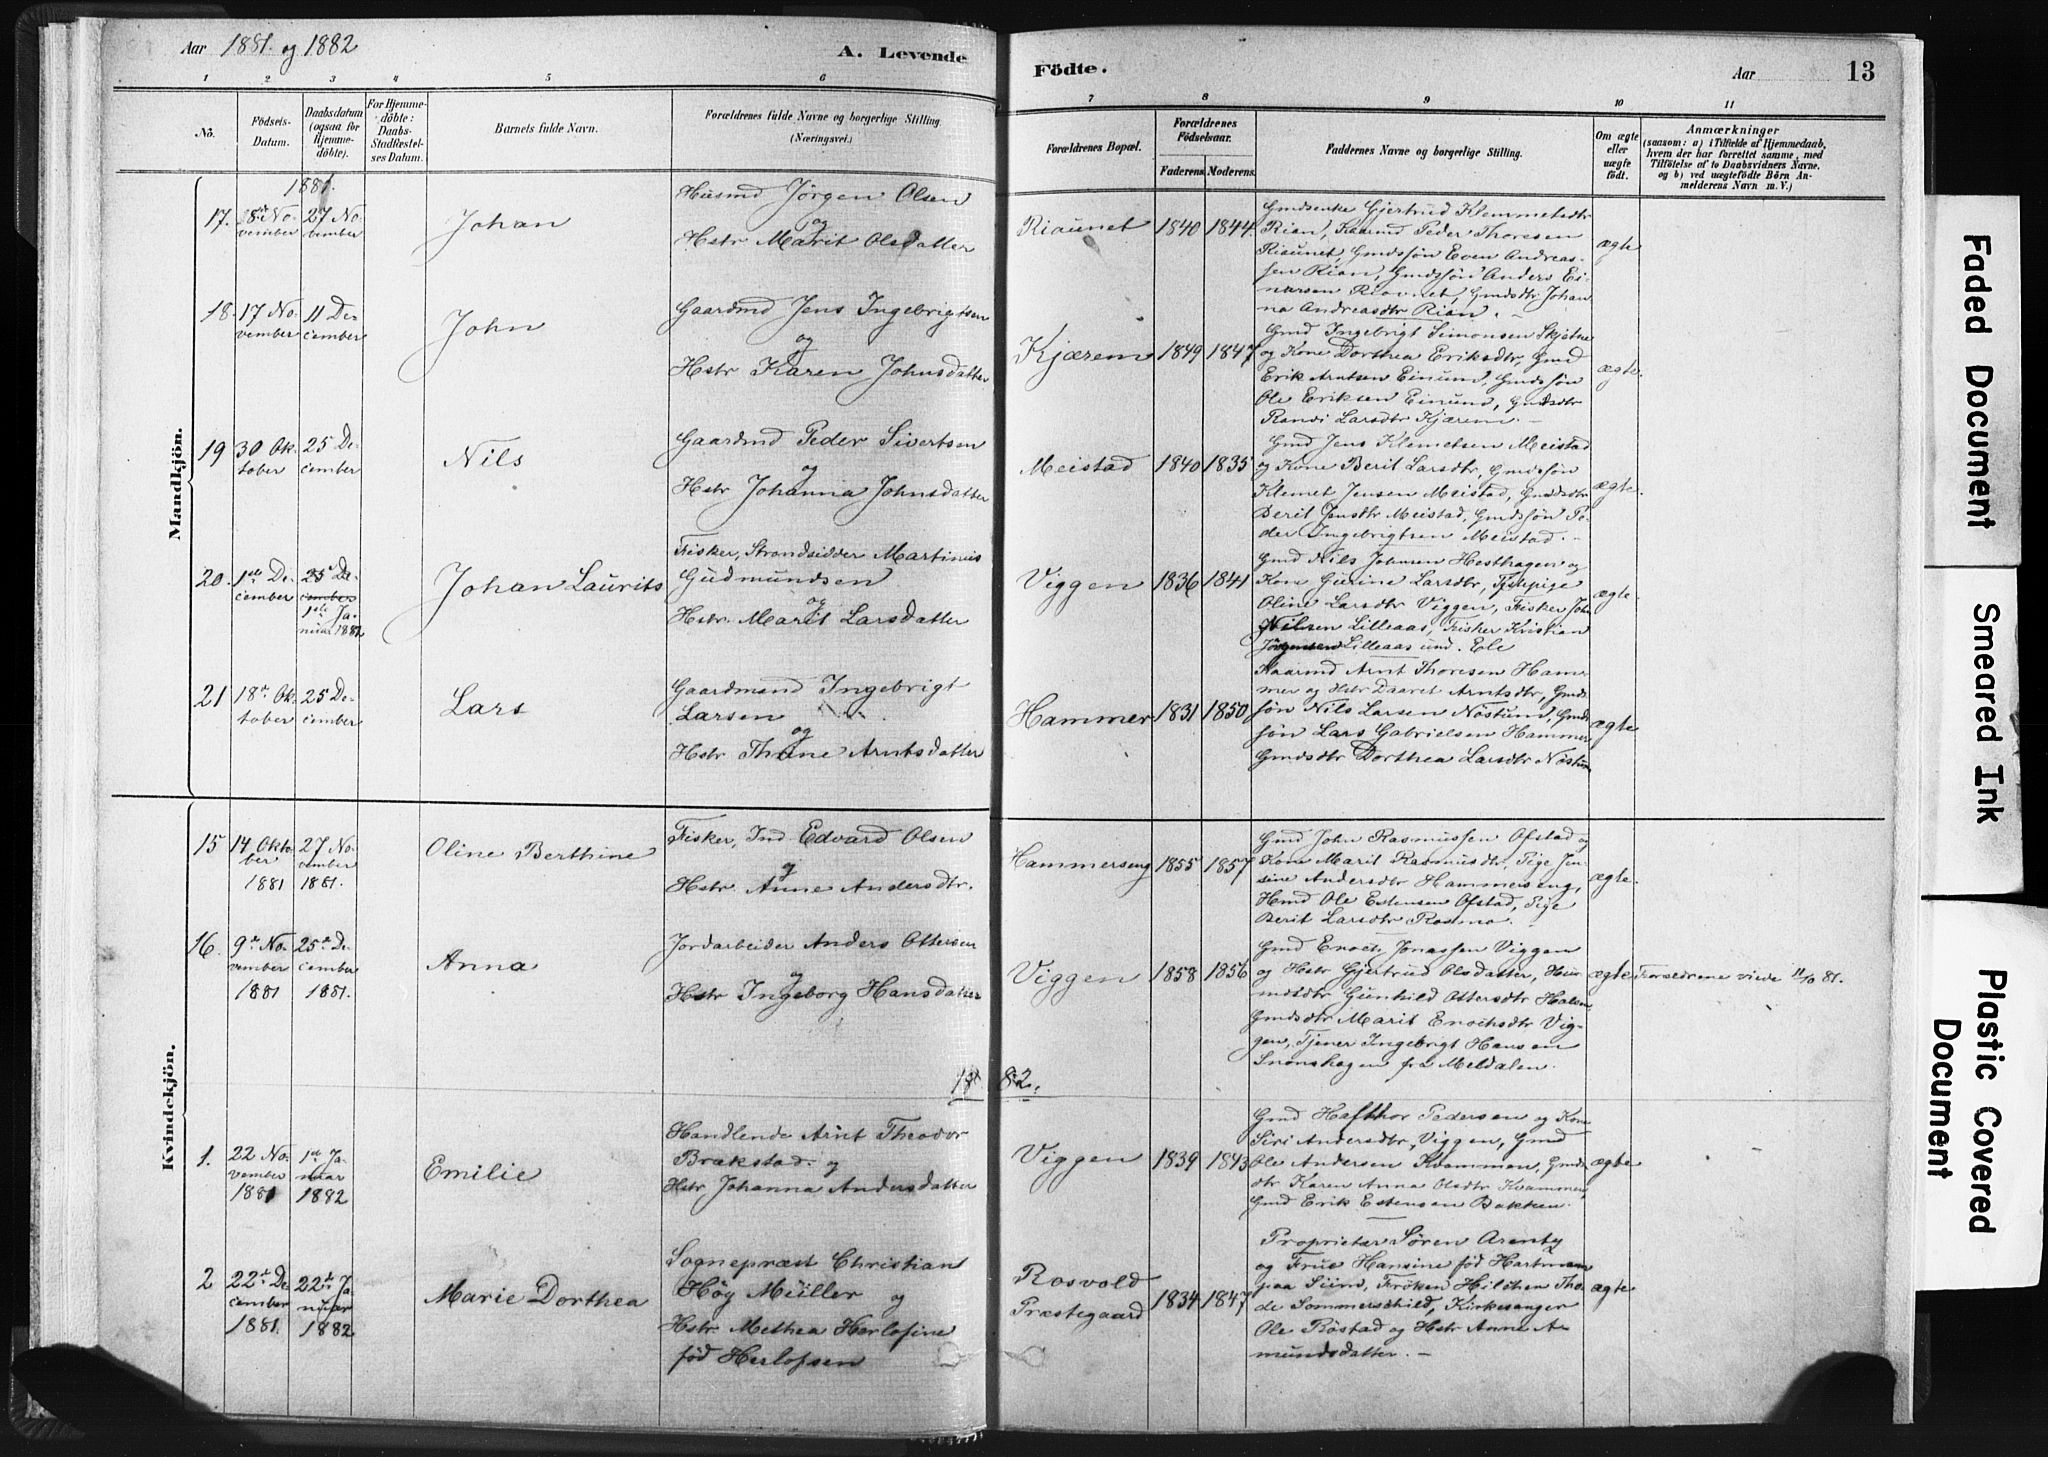 Aar 1881. og 1882
A. Levende
Födte.
Aar
13
1 2 3 4 5 6 7 8 9 10 11
No.
Födsels-
Datum.
Daabsdatum
(ogsaa for
Hjemme-
döbte).
For Hjemme-
döbte:
Daabs-
Stadfæstel-
ses Datum.
Barnets fulde Navn.
Forældrenes fulde Navne og borgerlige Stilling
(Næringsvei.)
Forældrenes Bopæl.
Forældrenes
Födselsaar.
Faderens Moderens.
Faddernes Navne og borgerlige Stilling.
Om ægte
eller
uægte
födt.
Anmærkninger
(saasom: a) i Tilfælde af Hjemmedaab,
hvem der har forrettet samme, med
Tilföielse af to Daabsvidners Navne.
og b) ved uægtefödte Börn An-
melderens Navn m. V.)
Mandkjön.
1881.
17. 8de No-
vember
27 No-
vember
Johan
Husmd Jörgen Olsen
og
Hstr Marit Olsdatter
Riaunet 1840 1844
Gmdsenke Gjertrud Klemmetsdtr
Rian, Kaarmd Peder Thoresen
Riaunet, Gmdssön Even Andreas-
sen Rian, Gmdssön Anders Ei-
narsen Riaunet, Gmdsdtr Johan
na Andreasdtr Rian. -
ægte
18. 17 No-
vember
11 De-
cember
John
Gaardmd Jens Ingebrigtsen
og
Hstr Karen Johnsdatter
Kjærem 1849 1847
Gmd Ingebrigt Simonsen Skjetne
og Kone Dorthea Eriksdtr, Gmd
Erik Arntsen Einum, Gmdssön
Ole Eriksen Einund, Gmdsdtr
Randi Larsdtr Kjærem. -
ægte.
19 30 Ok-
tober
25 De-
cember
Nils
Gaardmd Peder Sivertsen
og
Hstr Johanna Johnsdatter
Meistad 1840 1835
Gmd Jens Klemetsen Meistad
og Kone Berit Larsdtr, Gmdssön
Klemet Jensen Meistad, Gmdsdtr
Berit Jensdtr Meistad, Gmdssön Pe-
der Ingebrigtsen Meistad. -
ægte.
20. 1ste De-
cember
25 De-
cember
1ste Ja-
nuar 1882
Johan Laurits
Fisker, Strandsidder Martinus
Gudmundsen
og
Hstr. Marit Larsdatter
Viggen 1836 1841
Gmd Nils Johnsen Hesthagen og
Kone Gurine Larsdtr, Tjpige
Oline Larsdtr Viggen, Fisker John
Nilsen Lilleaas, Fisker Kristian
Jörgensen Lilleaas und. Ele
ægte.
21 18de Ok-
tober
25 De-
cember
Lars
Gaardmand Ingebrigt
Larsen
og
Hstr Thrine Arntsdatter
Hammer 1831 1850
Kaarmd Arnt Thoresen Ham-
mer og Hstr Daaret Arntsdtr, Gmds
sön Nils Larsen Nöstum, Gmds
sön Lars Gabrielsen Hammer
Gmdsdtr Dorthea Larsdtr Nöstum
ægte
Kvindekjön.
15 14 Okto
ber
1881
27 No-
vember
1881.
Oline Berthine
Fisker, Ind Edvard Olsen
og
Hstr. Anne Andersdtr.
Hammerseng 1855 1857
Gmd John Rasmussen Ofstad og
Kone Marit Rasmusdtr, Pige Jen-
sine Andersdtr Hammerseng,
Hmd Ole Estensen Ofstad, Pige
Berit Larsdtr Rosmo -
ægte.
16. 9de No-
vember
1881
25de De-
cember
1881.
Anna
Jordarbeider Anders Ottersen
og
Hstr Ingeborg Hansdatter
Viggen 1858 1856
Gmd Enoch Jonassen Viggen
og Hstr Gjertrud Olsdatter, Hus-
mdsdtr Gunhild Ottersdtr Halsen,
Gmdsdtr Marit Enochsdtr Vig-
gen, Tjener Ingebrigt Hansen
Snoenshagen fra Meldalen.
ægte
Forældrene viede 11/10 81.
1882.
1. 22 No-
vember
1881
1ste Ja-
nuar
1882
Emilie
Handlende Arnt Theodor
Brækstad og
Hstr Johanna Andersdatter
Viggen 1839 1843
Gmd Hafthor Pedersen og Kone
Siri Andersdtr, Viggen, Gmd
Ole Andersen Kvammen, Gmds-
dtr Karen Anna Olsdtr Kvammen,
Gmd Erik Estensen Bakken.
ægte
2 22de De
cember
1881.
22de Ja-
nuar
1882
Marie Dorthea
Sognepræst Christian
Höy Müller og
Hstr Methea Herlofine
föd Herlofsen
Rosvold
Præstegaard 1834 1847
Proprietær Sören Arentz
og Frue Hansine föd Hartmann
paa Siim, Fröken Hilchen Tho-
de Sommerschild, Kirkesanger
Ole Röstad og Hstr Anne A-
mundsdatter. -
ægte
Faded Document
Smeared Ink
Plastic Covered
Document